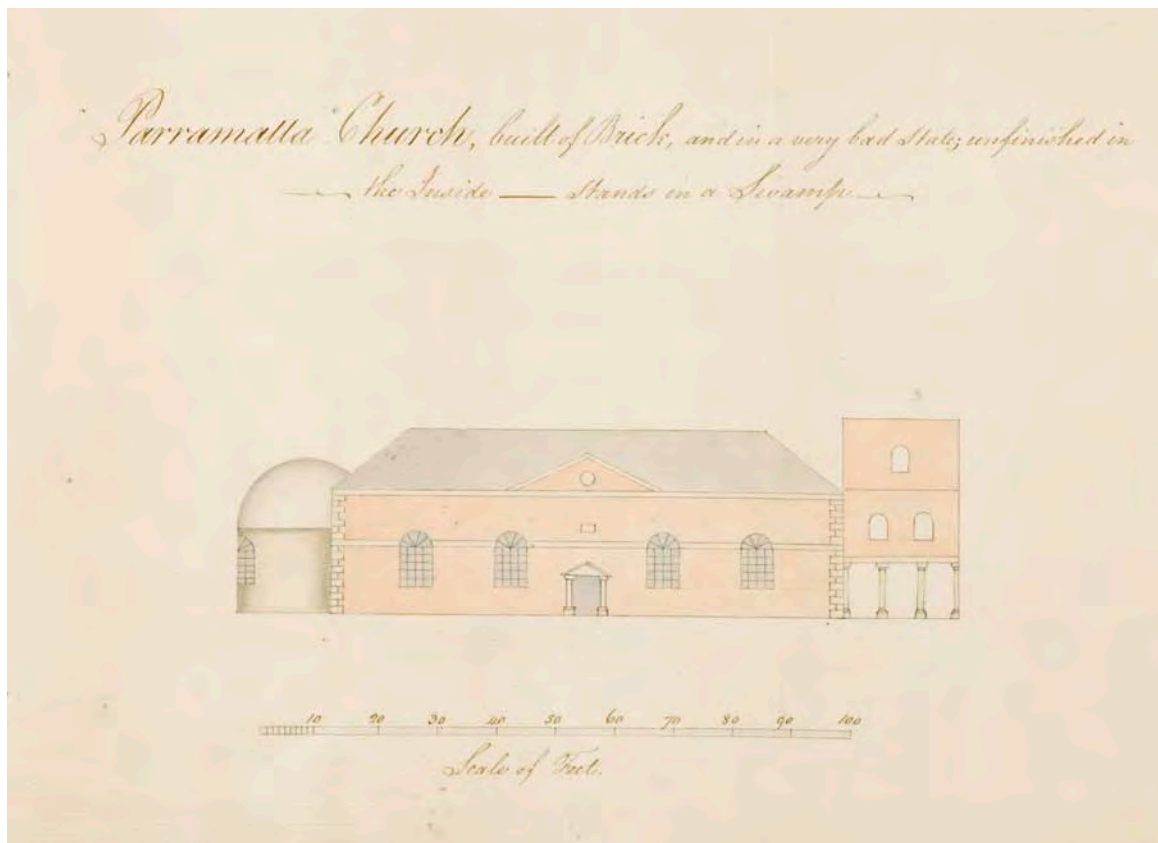 Parramatta Church, built of Brick, and in a very bad state; unfinished in
the Inside — stands in a Swamp
10 20 30 40 50 60 70 80 90 100
Scale of Feet.